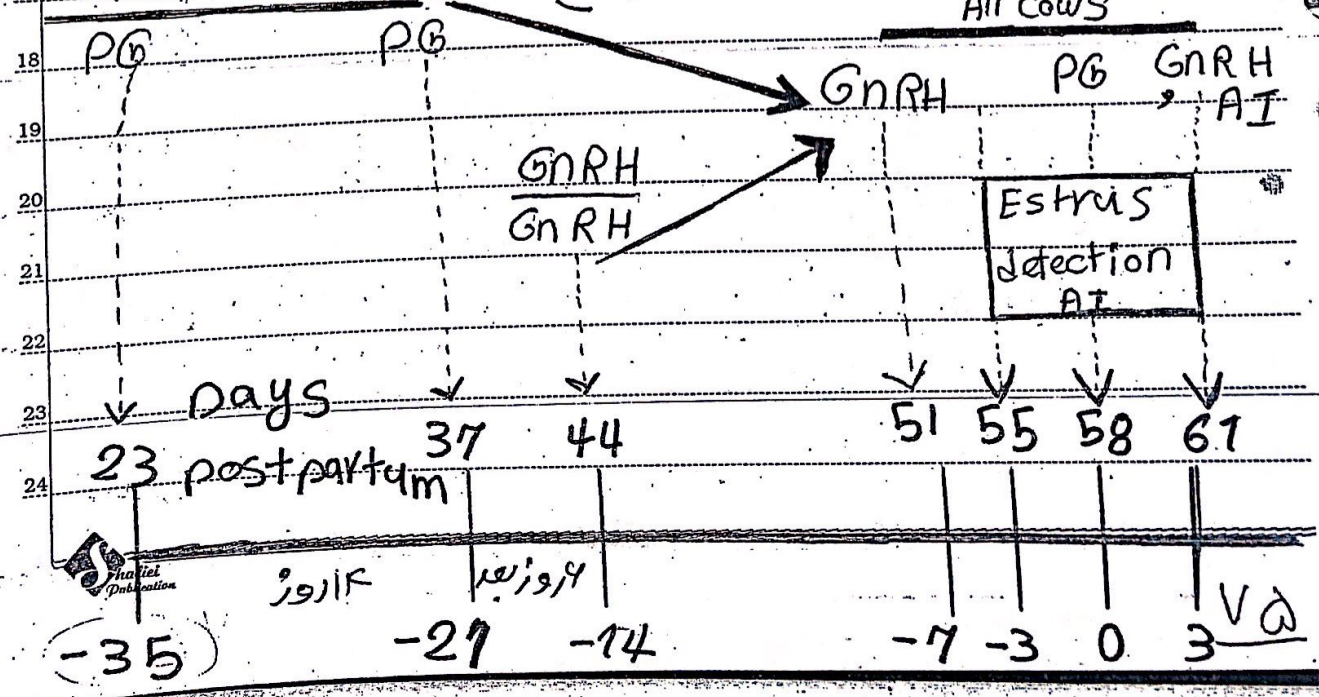 All cows
PG PG GnRH PG GnRH, AI
18
19
GnRH
GnRH
20
Estrus
detection
AI
21
22
23
Days
postpartum
23 37 44 51 55 58 61
24
Shafiei
Publication
۱۴ روز
-35 -21 -14 -7 -3 0 3